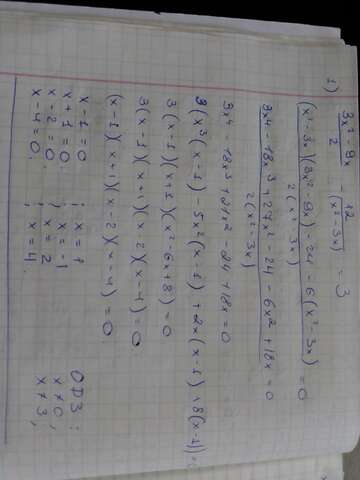 1) (3x² - 9x)/2 - 12/(x² - 3x) = 3
((x² - 3x)(3x² - 9x) - 24 - 6(x² - 3x))/(2(x² - 3x)) = 0
(3x⁴ - 18x³ + 27x² - 24 - 6x² + 18x)/(2(x² - 3x)) = 0
3x⁴ - 18x³ + 21x² - 24 + 18x = 0
3(x³(x - 1) - 5x²(x - 1) + 2x(x - 1) + 8(x - 1)) =
3(x - 1)(x + 1)(x² - 6x + 8) = 0
3(x - 1)(x + 1)(x - 2)(x - 4) = 0
(x - 1)(x + 1)(x - 2)(x - 4) = 0
x - 1 = 0 ; x = 1
x + 1 = 0 ; x = -1
x - 2 = 0 ; x = 2
x - 4 = 0 ; x = 4.
ОДЗ:
x ≠ 0,
x ≠ 3,